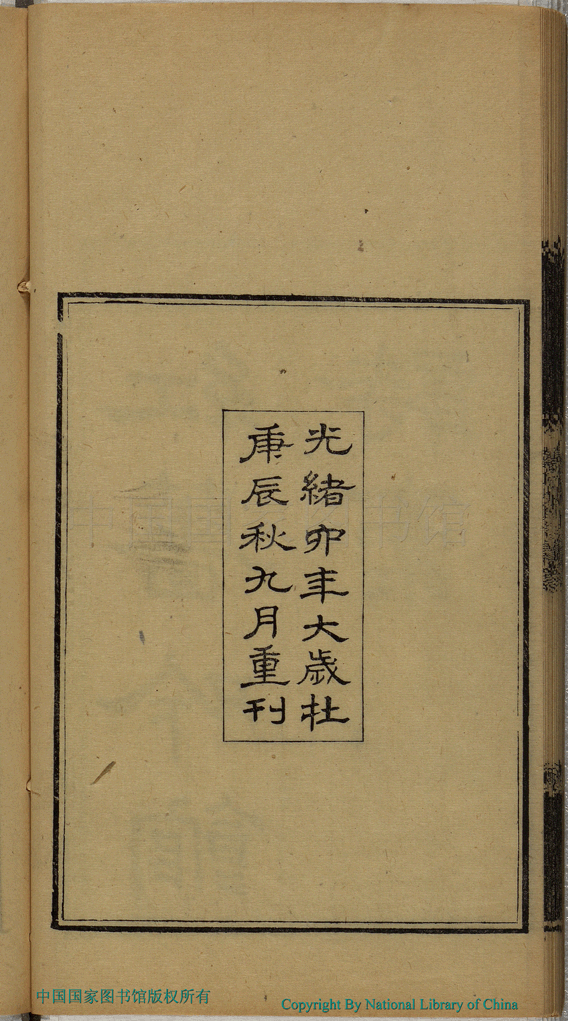 光緒六年大歲在
庚辰秋九月重刊
中国国家图书馆版权所有
Copyright By National Library of China